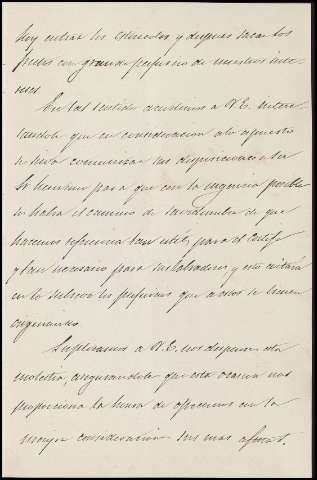 hoy entrar los   y despues sacar los
frutos con grande perjuicio de nuestros inte-
reses
En tal sentido acudimos a V.E. 
 que en consideracion a lo espuesto
se sirva comunicar sus disposiciones a la
 para que con la urgencia posible
se habra el camino de  de que
hacemos referencia tan util para el 
y tan necesario para sus labradores y 
en lo  los perjuicios que a estos se 
originando.
Suplicamos a V.E. nos dispense esta
molestia, asegurandole que esta ocasion nos
proporciona la honra de ofrecernos con la
mayor consideracion sus mas afmos.